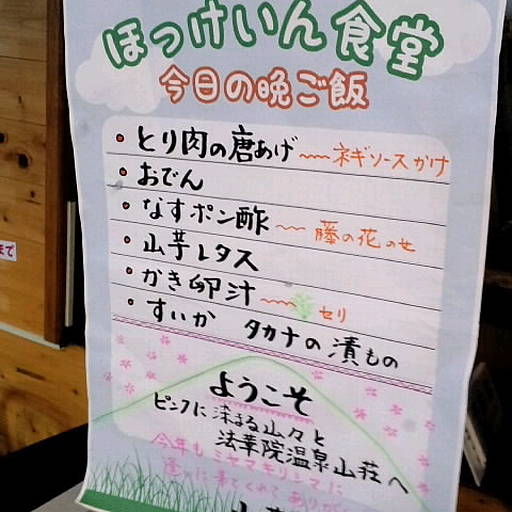 ほっけいん食堂
今日の晩ご飯
・とり肉の唐あげ 〜〜 ネギソースがけ
・おでん
・なすポン酢 〜〜 藤の花のせ
・山芋レタス
・かき卵汁 〜〜 セリ
・すいか タカナの漬もの
ようこそ
ピンクに染まる山々と
法華院温泉山荘へ
今年もミヤマキリシマに
逢いに来てくれてありが
まで